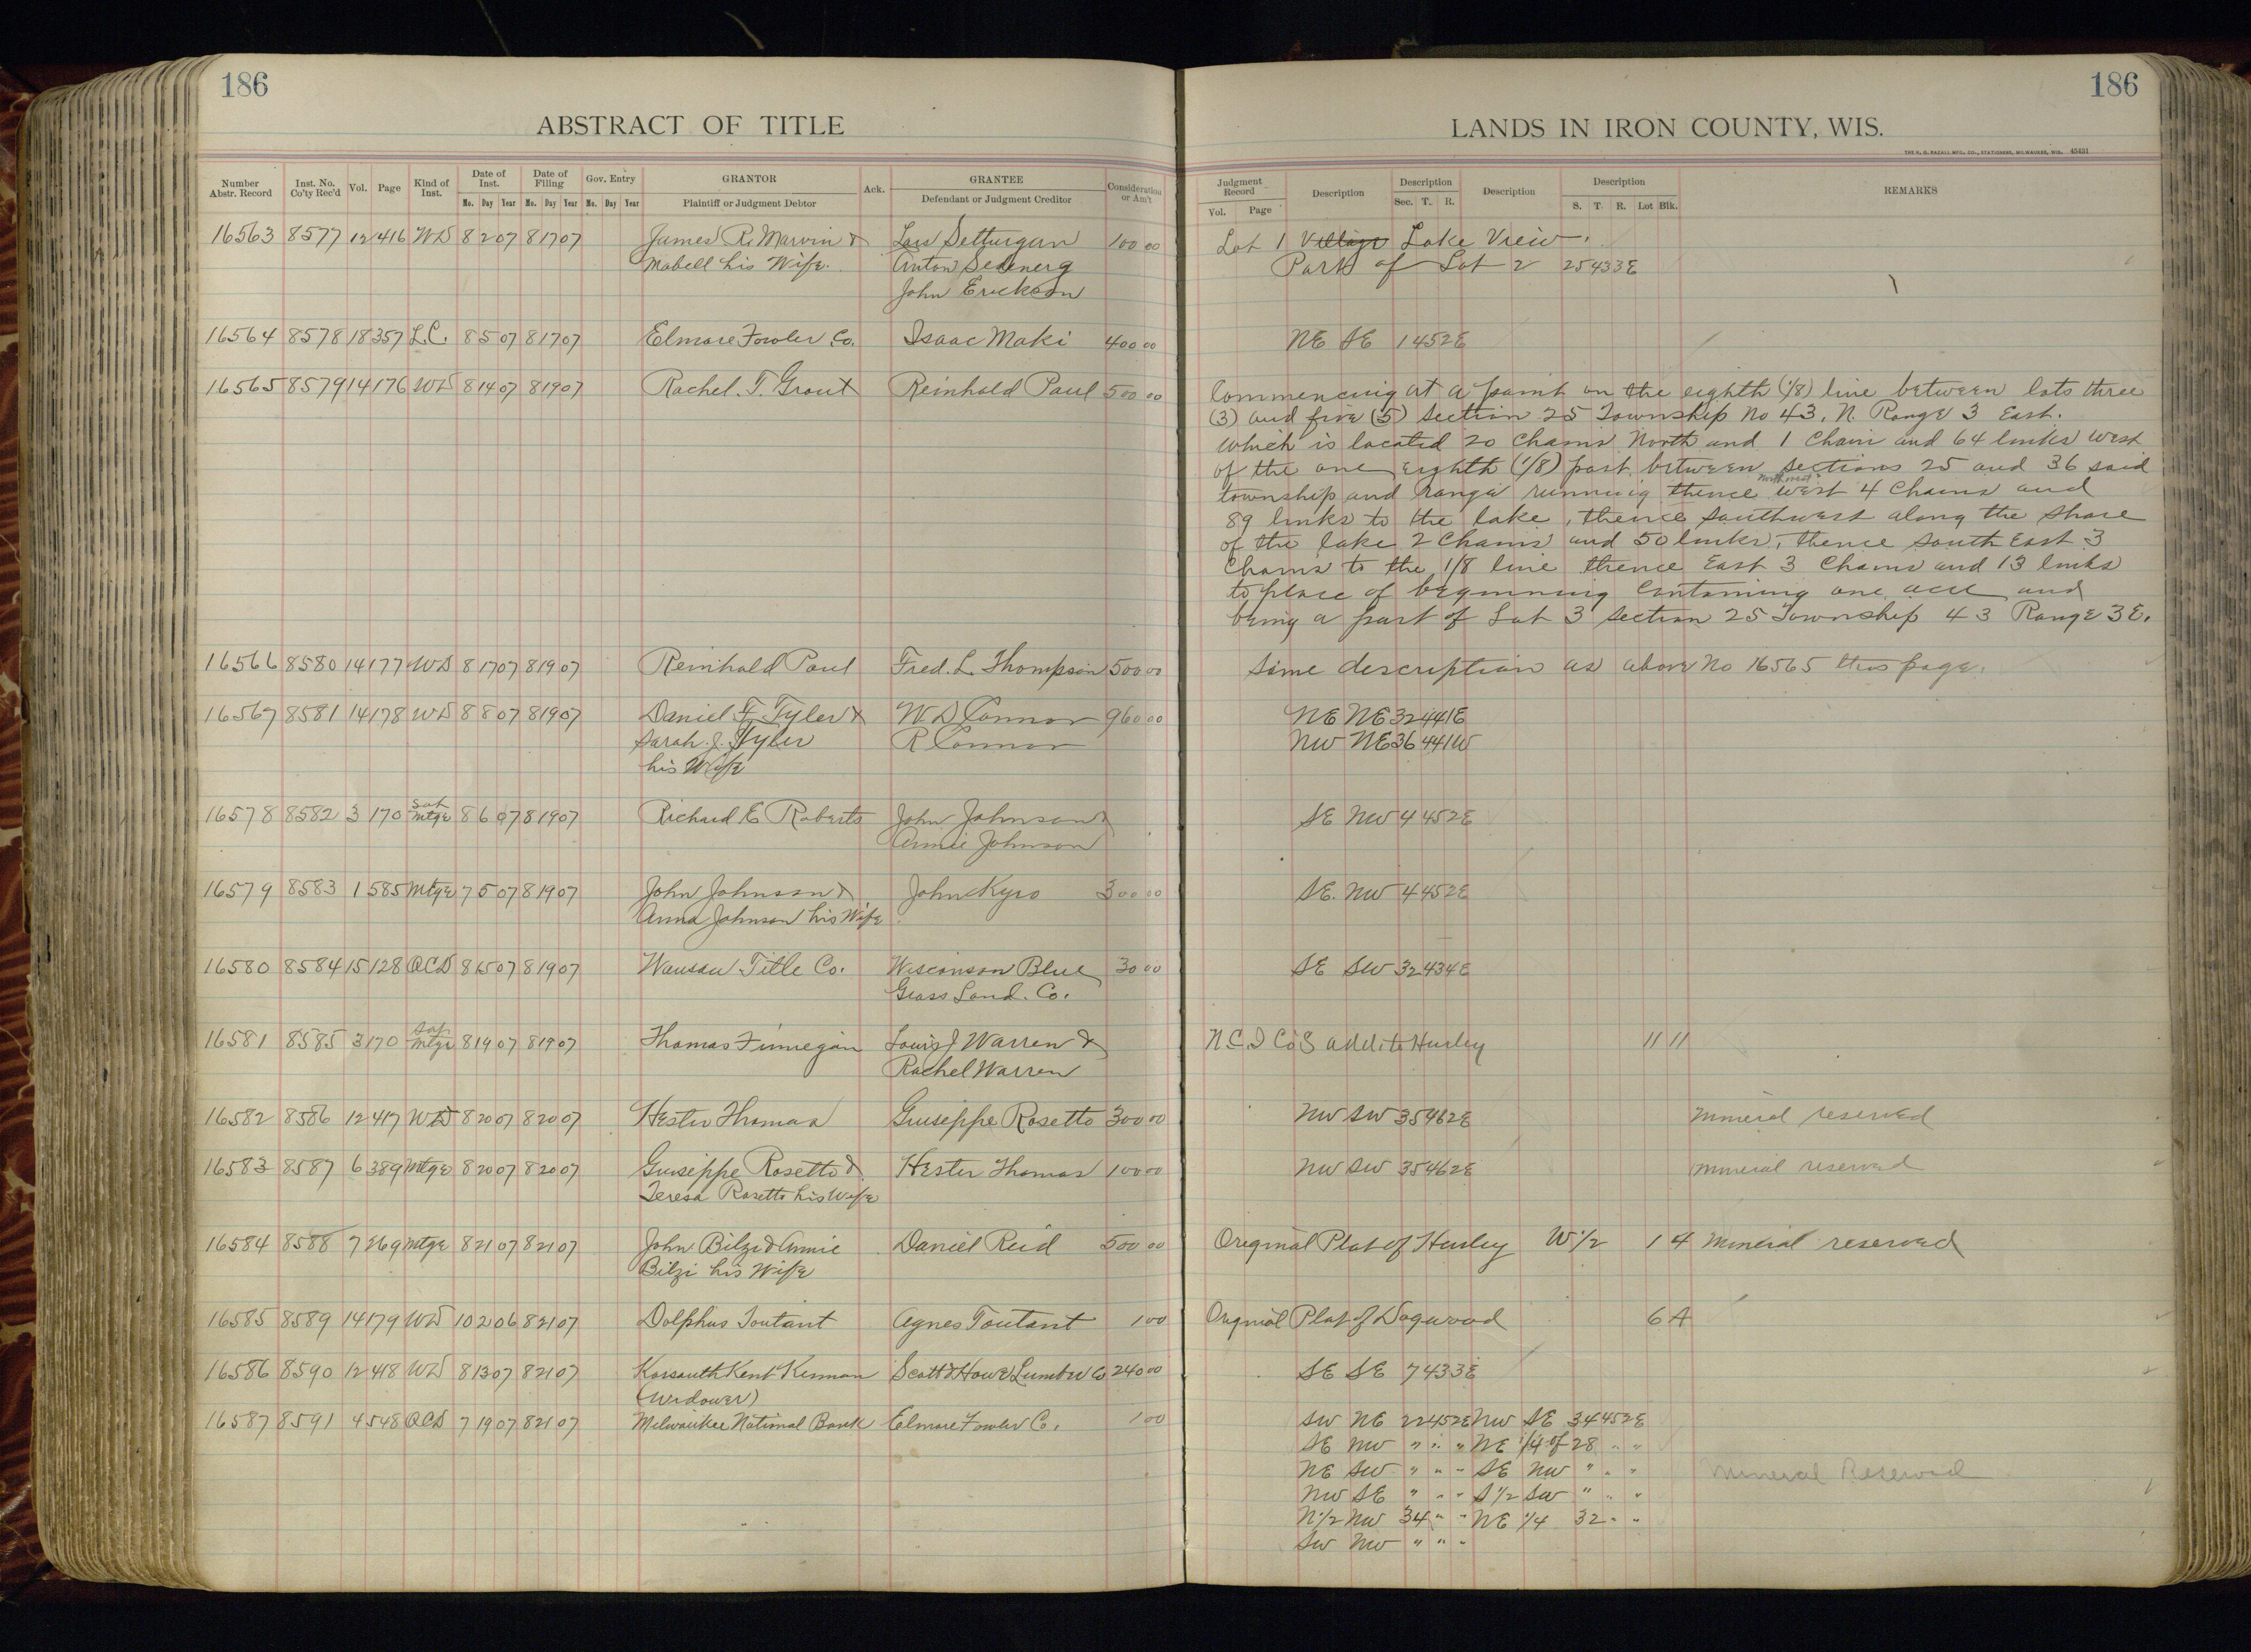 186
ABSTRACT OF TITLE
Number Abstr. Record | Inst. No. Co'ty Rec'd | Vol. | Page | Kind of Inst. | Date of Inst. Mo. Day Year | Date of Filing Mo. Day Year | Gov. Entry Mo. Day Year | GRANTOR Plaintiff or Judgment Debtor | Ack. | GRANTEE Defendant or Judgment Creditor | Consideration or Am't
16563 8577 12 416 WD 8 2 07 8 17 07 James R. Marvin & Lars 100 00
Mabell his Wife. Anton
John Erickson
16564 8578 18 357 L.C. 8 5 07 8 17 07 Elmore Fowler Co. Isaac Maki 400 00
16565 8579 14 176 WD 8 14 07 8 19 07 Rachel. T. Grout Reinhold Paul 500 00
16566 8580 14 177 WD 8 17 07 8 19 07 Reinhold Paul Fred. L. Thompson 500 00
16567 8581 14 178 WD 8 8 07 8 19 07 Daniel F. Tyler & W. D Connor 960 00
Sarah. J. Tyler R Connor
his Wife
16578 8582 3 170 Sat Mtge 8 6 07 8 19 07 Richard E Roberts John Johnson &
Annie Johnson
16579 8583 1 585 Mtge 7 5 07 8 19 07 John Johnson & John Kyro 300 00
Anna Johnson his Wife
16580 8584 15 128 QCD 8 15 07 8 19 07 Wausau Title Co. Wisconson Blue 30 00
Grass Land. Co.
16581 8585 3 170 Sat Mtge 8 19 07 8 19 07 Thomas Finnegan Louis J Warren &
Rachel Warren
16582 8586 12 417 WD 8 20 07 8 20 07 Hester Thomas Giuseppe Rosetto 300 00
16583 8587 6 389 Mtge 8 20 07 8 20 07 Guiseppe Rosetto & Hester Thomas 100 00
Teresa Rosetto his Wife
16584 8588 7 269 Mtge 8 21 07 8 21 07 John Bilzi & Annie Daniel Reid 500 00
Bilzi his Wife
16585 8589 14 179 WD 10 2 06 8 21 07 Dolphus Toutant Agnes Toutant 1 00
16586 8590 12 418 WD 8 13 07 8 21 07 Kossouth Kent Kennan Scott & Howe Lumber Co 240 00
(Widower)
16587 8591 4 548 QCD 7 19 07 8 21 07 Milwaukee National Bank Elmore Fowler Co. 1 00
186
LANDS IN IRON COUNTY, WIS.
THE H. G. RAZALL MFG. CO., STATIONERS, MILWAUKEE, WIS. 43431
Judgment Record Vol. Page | Description | Description Sec. T. R. | Description | Description S. T. R. Lot Blk. | REMARKS
Lot 1 Village Lake View.
Part of Lot 2 25 43 3E
NE SE 1 45 2E
Commencing at a point on the eighth (1/8) line between lots three
(3) and five (5) Section 25 Township No 43, N. Range 3 East.
which is located 20 Chains North and 1 Chain and 64 links West
of the one eighth (1/8) post between sections 25 and 36 said
township and range running thence Northwest west 4 Chains and
89 links to the lake, thence southwest along the shore
of the lake 2 Chains and 50 links, thence South East 3
Chains to the 1/8 line thence East 3 Chains and 13 links
to place of beginning Containing one acre and
being a part of Lot 3 Section 25 Township 43 Range 3E.
Same description as above No 16565 this page.
NE NE 32 44 1E
NW NE 36 44 1W
SE NW 4 45 2E
SE. NW 4 45 2E
SE SW 32 43 4E
N.C.I Co's addi to Hurley 11 11
NW SW 35 46 2E Mineral reserved
NW SW 35 46 2E Mineral reserved
Original Plat of Hurley W 1/2 1 4 Mineral reserved
Original Plat of Dogwood 6 A
SE SE 7 43 3E
SW NE 22 45 2E NW SE 34 45 2E
SE NW " " " NE 1/4 of 28 " "
NE SW " " " SE NW " " " Mineral Reserved
NW SE " " " S 1/2 SW " " "
N 1/2 NW 34 " " NE 1/4 32 " "
SW NW " " "